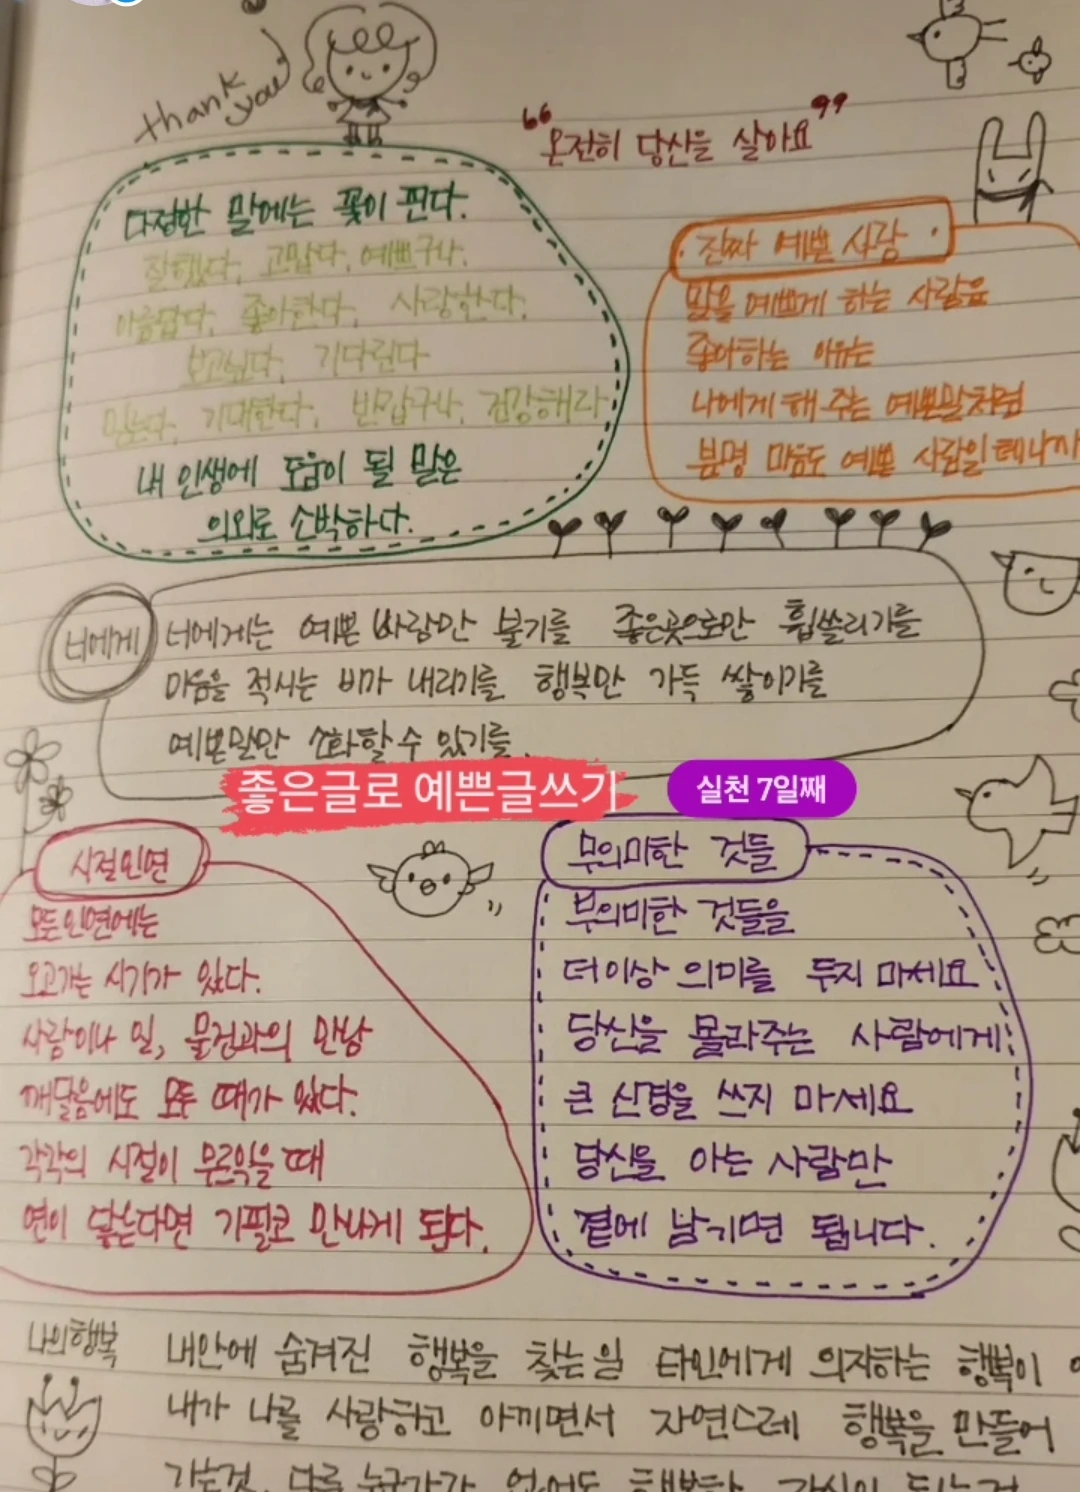 thank you
“온전히 당신을 살아요”
다정한 말에는 꽃이 핀다.
잘했다, 고맙다, 예쁘구나,
아름답다, 좋아한다, 사랑한다,
보고싶다, 기다린다
믿는다, 기대한다, 반갑구나, 건강해라
내 인생에 도움이 될 말은
의외로 소박하다.
진짜 예쁜 사람
말을 예쁘게 하는 사람을
좋아하는 이유는
나에게 해 주는 예쁜말처럼
분명 마음도 예쁜 사람일테니까
너에게
너에게는 예쁜 바람만 불기를 좋은곳으로만 휩쓸리기를
마음을 적시는 비가 내리기를 행복만 가득 쌓이기를
예쁜말만 소화할 수 있기를.
좋은글로 예쁜글쓰기
실천 7일째
시절인연
모든인연에는
오고가는 시기가 있다.
사람이나 일, 물건과의 만남
깨달음에도 모두 때가 있다.
각각의 시절이 무르익을 때
연이 닿는다면 기필코 만나게 된다.
무의미한 것들
무의미한 것들을
더이상 의미를 두지 마세요
당신을 몰라주는 사람에게
큰 신경을 쓰지 마세요
당신을 아는 사람만
곁에 남기면 됩니다.
나의행복
내안에 숨겨진 행복을 찾는일 타인에게 의지하는 행복이
내가 나를 사랑하고 아끼면서 자연스레 행복을 만들어
가는것, 다른 누군가가 없어도 행복한